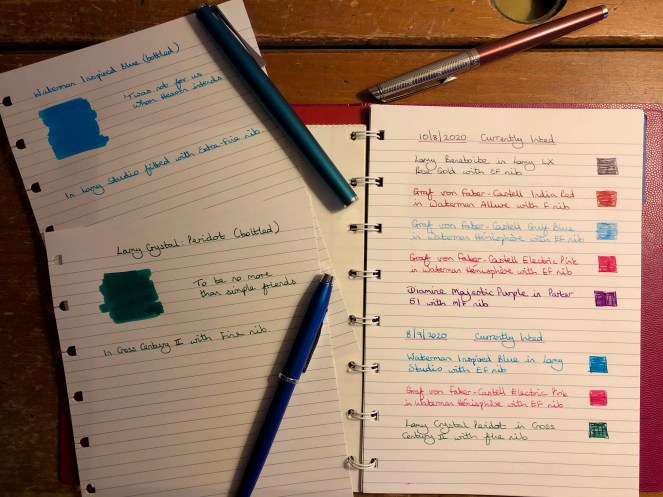 Waterman Inspired Blue (bottled)
'Twas not for us
whom Heaven intends
In Lamy Studio fitted with Extra-Fine nib.
Lamy Crystal: Peridot (bottled)
To be no more
than simple friends
In Cross Century II with Fine nib.
10/8/2020 Currently Inked
Lamy Benitoite in Lamy LX
Rose Gold with EF nib
Graf von Faber-Castell India Red
in Waterman Allure with F nib
Graf von Faber-Castell Gulf Blue
in Waterman Hémisphère with EF nib
Graf von Faber-Castell Electric Pink
in Waterman Hémisphère with EF nib
Diamine Majestic Purple in Parker
51 with M/F nib
8/9/2020 Currently Inked
Waterman Inspired Blue in Lamy
Studio with EF nib
Graf von Faber-Castell Electric Pink
in Waterman Hémisphère with EF nib
Lamy Crystal Peridot in Cross
Century II with fine nib